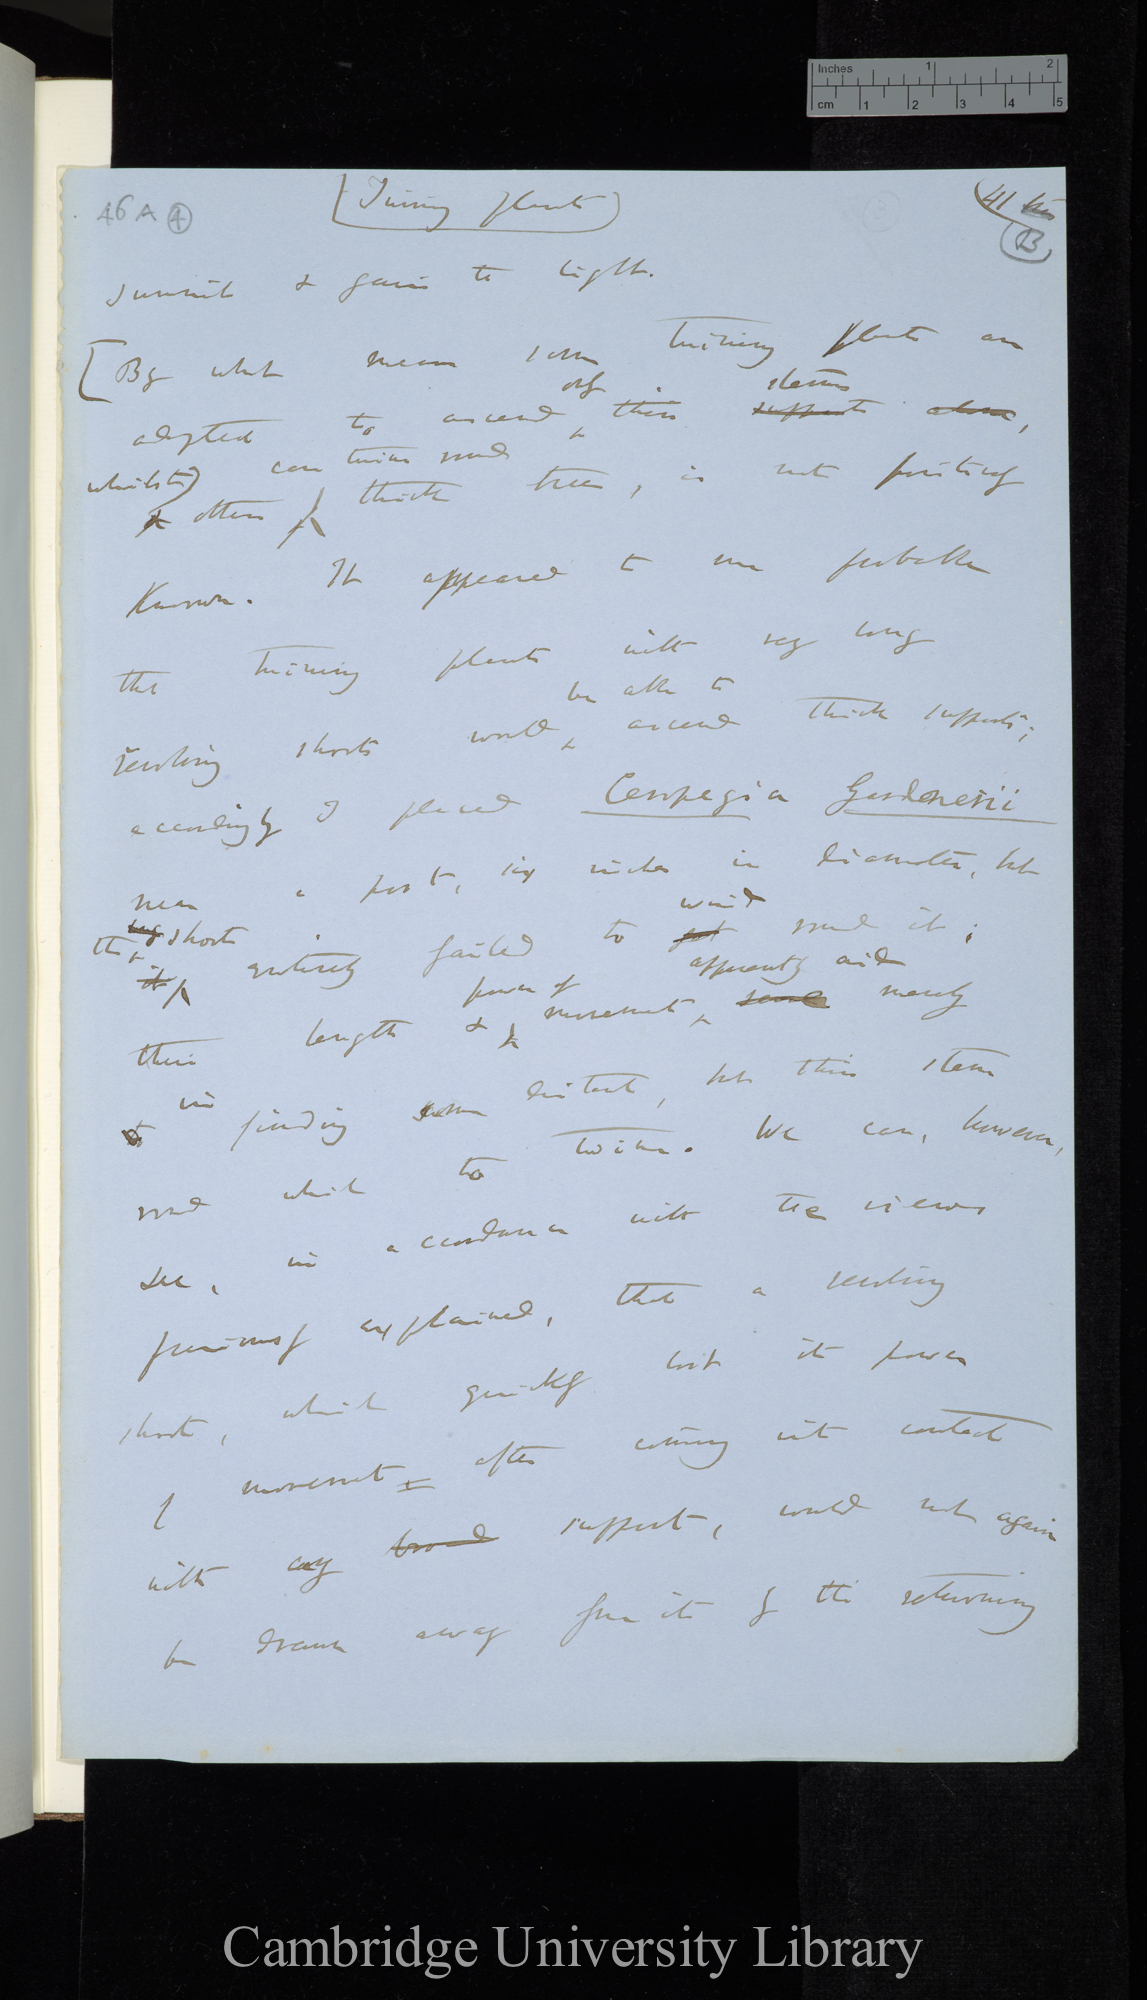 Inches 1 2
cm 1 2 3 4 5
46 A 4
(Twining plants)
41 bis
B
summit & gain the light.
[By what means some twining plants are
only stems
adapted to ascend thin supports alone,
whilst) can twine round
& others thick trees, is not positively
Known. It appeared to me probable
that twining plants with very long
be able to
revolving shoots would ascend thick supports;
accordingly I placed Ceropegia Gardnerii
near a post, six inches in diameter, but
wind
the shoots entirely failed to round it;
apparently aid
power of
their length & movement, merely
in finding some distant, but thin stem
round which to twine. We can, however,
see, in accordance with the views
previously explained, that a revolving
shoot, which quickly lost its power
of movement after coming into contact
with any broad support, would not again
be drawn away from it by the returning
Cambridge University Library